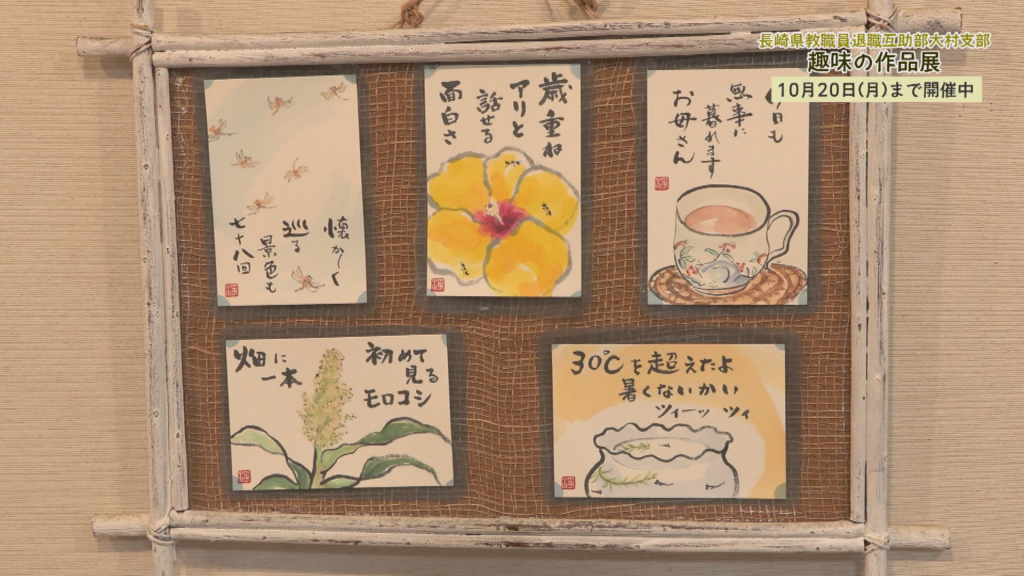 長崎県教職員退職互助部大村支部
趣味の作品展
10月20日(月)まで開催中
懐かしく
巡る
景色も
七十八回
歳重ね
アリと
話せる
面白さ
日も
無事に
暮れます
お母さん
畑に
一本
初めて
見る
モロコシ
30℃を超えたよ
暑くないかい
ツィーッ ツィ